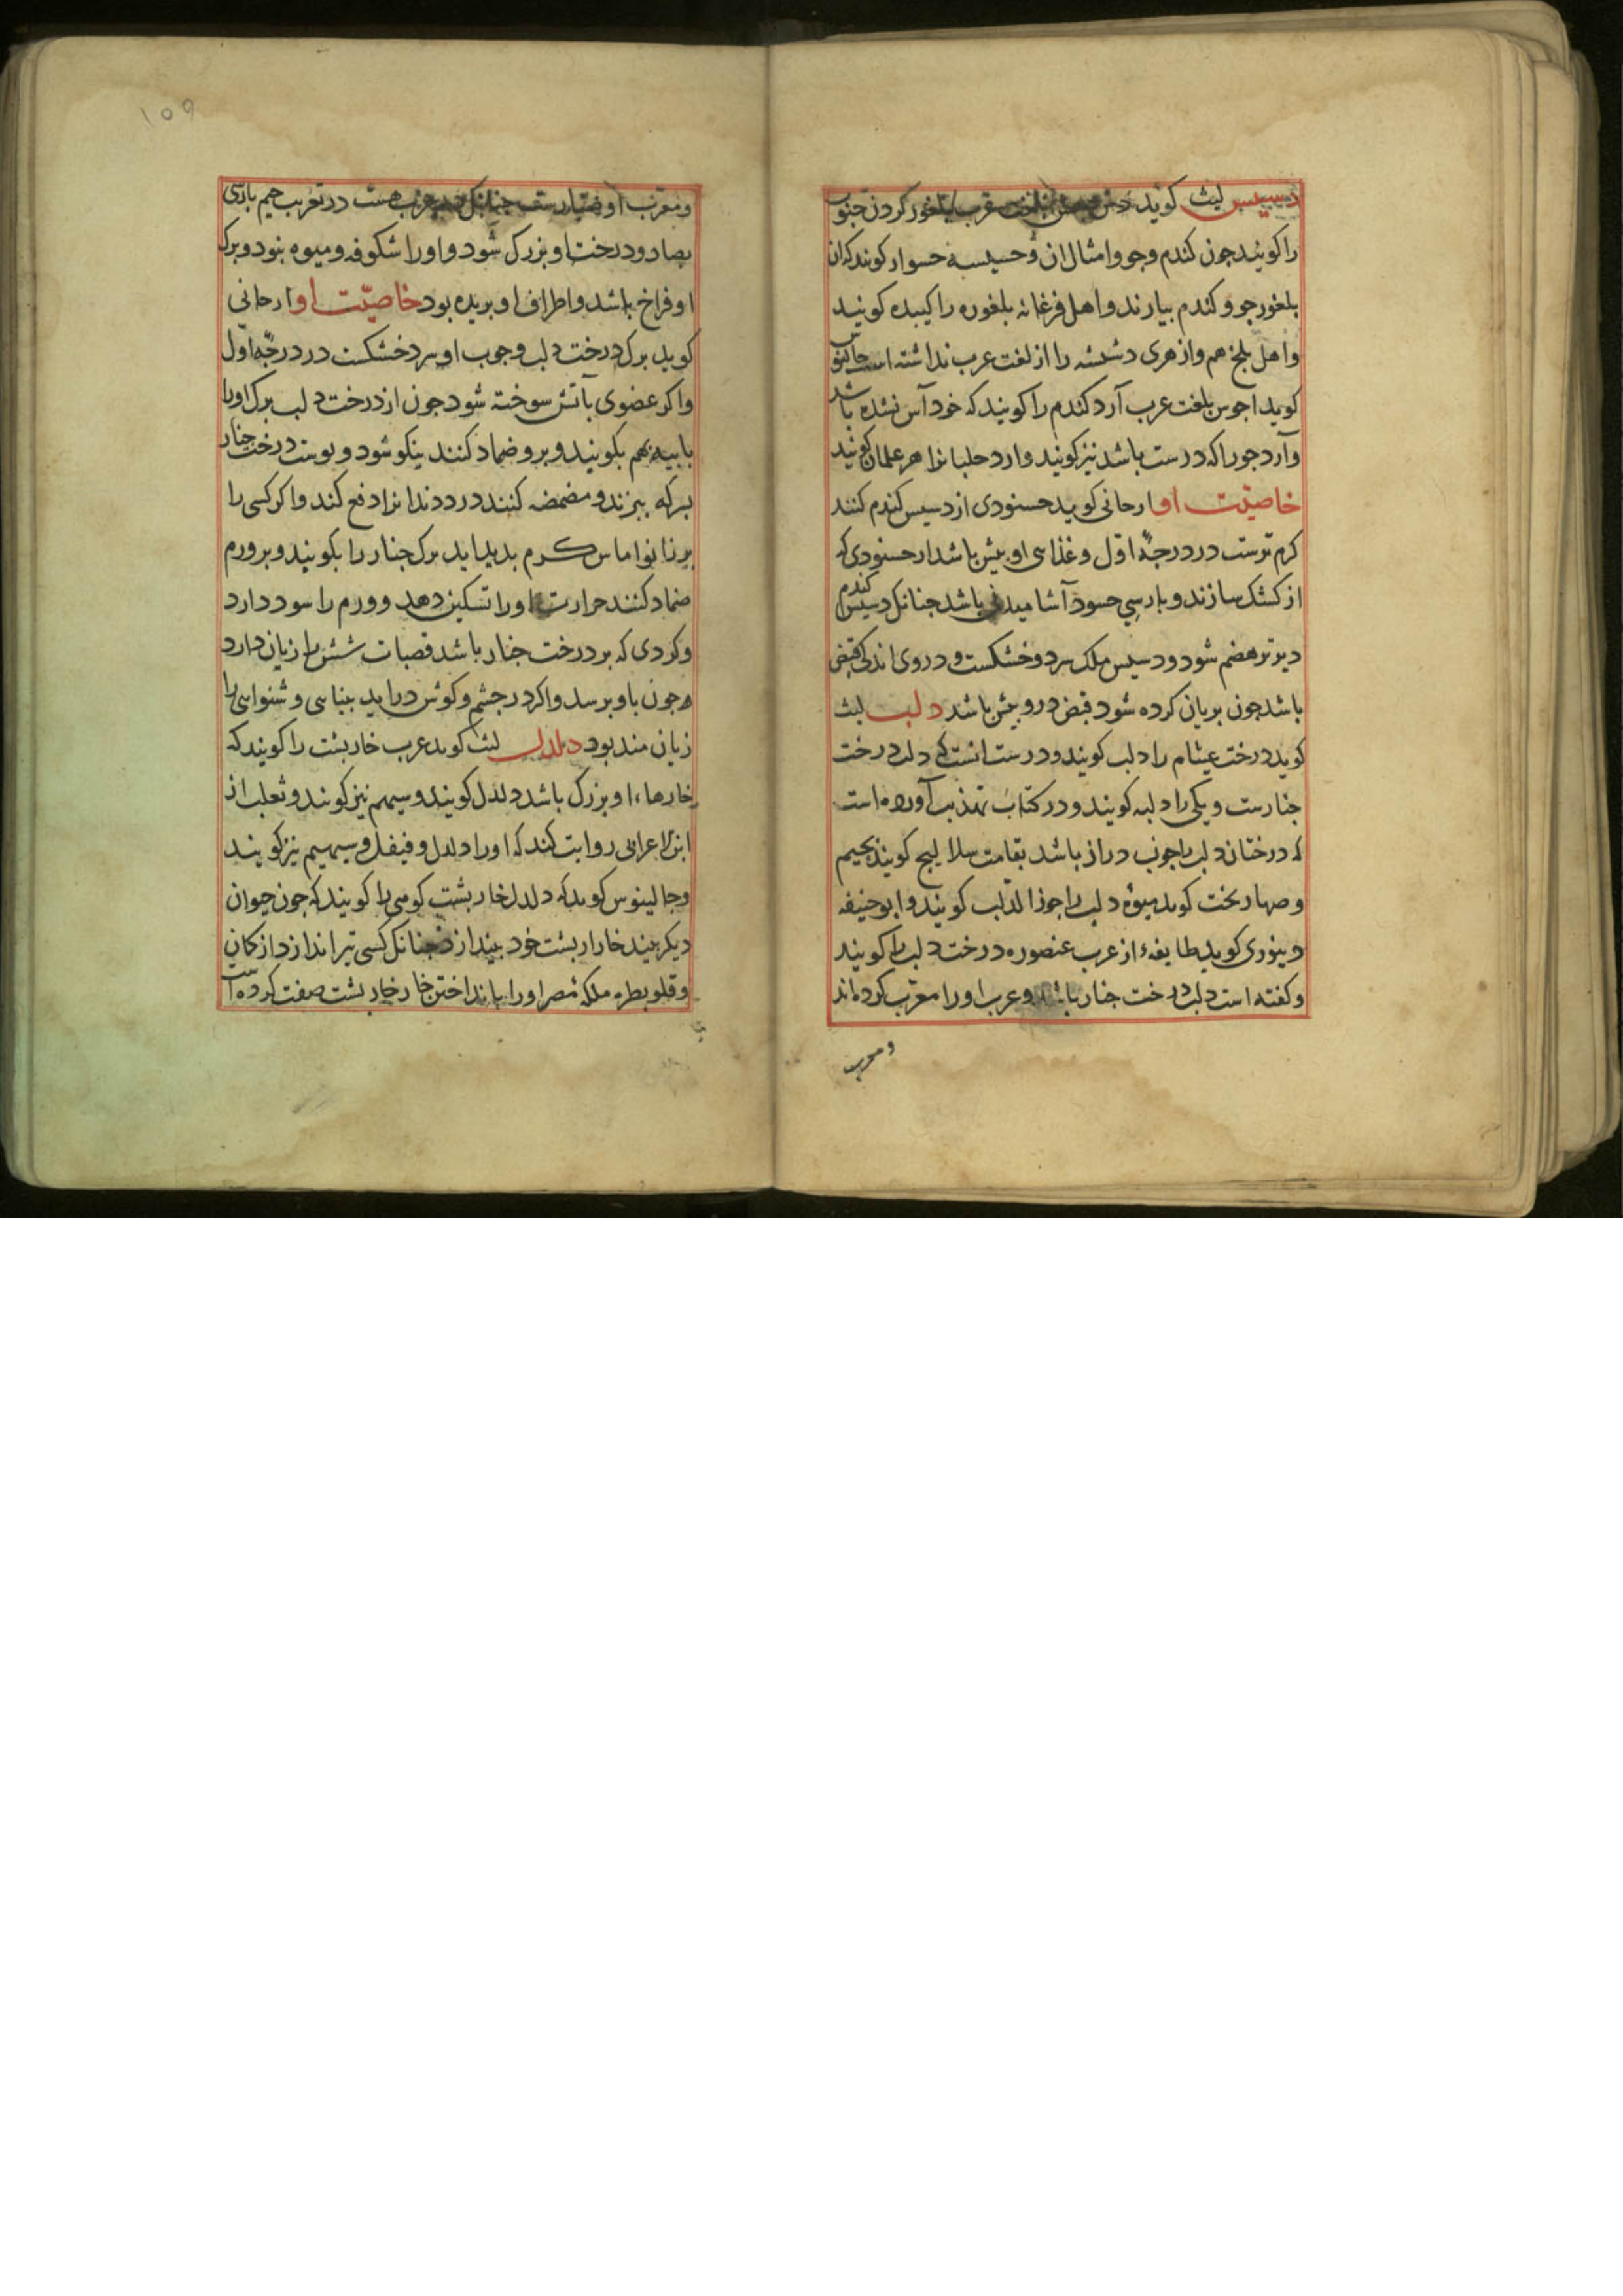 دسیس لیث کوید بلغت عرب بلغور کردن حبوب
را کویند جون کندم وجو وامثال ان و حسیسه حسوار کویند که ان
بلغور جو و کندم بیارند و اهل فرغانه بلغوره را کویند
و اهل بلخ هم و ازهری دشیشه را از لغت عرب نداشته است جالینوس
کوید اجوس بلغت عرب آرد کندم را کویند که خود آس نشده باشد
وآرد جو را که درست باشد نیز کویند وارد کویند
خاصیت او ارجانی کوید حسودی از دسیس کندم کنند
کرم ترست در درجه اول و غذای او بیش باشد از حسودی که
از کشک سازند و بارسی حسو آشامیدنی باشد جنانک دسیس کندم
دیرتر هضم شود ودسیس ملک سرد وخشکست و دروی اندکی قبض
باشد جون بریان کرده شود قبض درو بیش باشد دلب لیث
کوید درخت عیثام را دلب کویند ودرست انست که دلب درخت
جنارست و یکی را دلبه کویند و در کتاب تهذیب آورده است
که درختان دلب را جوب دراز باشد بقامت کویند بجیم
و صهاربخت کوید میوه دلب را جوز الدلب کویند و ابو حنیفه
دینوری کوید طایفهء از عرب درخت دلب را کویند
و کفته است دلب درخت جنار باشد و عرب اورا معرب کرده اند
و معرب
۱۵۹
و معرب او صنارست جنانک عرب هست در تعریب جیم بارسی
بصاد ودرخت او بزرک شود و او را شکوفه و میوه نبود و برک
او فراخ باشد و اطراف او بریده بود خاصیت او ارجانی
کوید برک درخت دلب وجوب او سرد خشکست در درجه اول
واکر عضوی بآتش سوخته شود جون از درخت دلب برک اورا
با بیه بهم بکویند و برو ضماد کنند نیکو شود و بوست درخت جنار
بسرکه ببزند و مضمضه کنند درد دندانرا دفع کند و اکر کسی را
بر زانو اماس کرم بدید اید برک جنار را بکویند و بر ورم
ضماد کنند حرارت اورا تسکین دهد و ورم را سود دارد
وکردی که بر درخت جنار باشد قصبات شش را زیان دارد
جون باو برسد واکر در جشم و کوش دراید بینایی و شنوایی را
زیان مند بود دلدل لیث کوید عرب خاربشت را کویند که
خارهاء او بزرک باشد دلدل کویند و شیهم نیز کویند و ثعلب از
ابن اعرابی روایت کند که اورا دلدل و و شیهم نیز کویند
وجالینوس کوید که دلدل خاربشت کوهی را کویند که جون حیوان
دیکر بیند خار از بشت خود بیندازد جنانک کسی تیر اندازد از کمان
و قلوبطره ملکه مصر اورا بانداختن خار خاربشت صفت کرده است